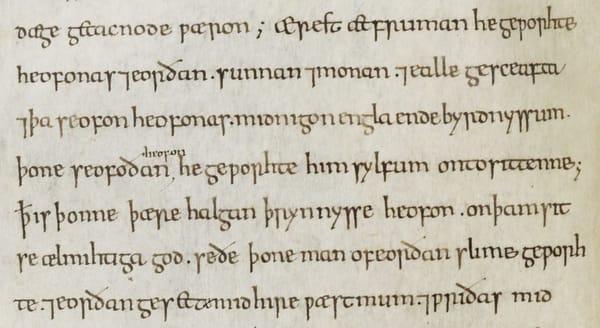 dæge getacnode wæron; ærest æt fruman he geworhte
heofonas ⁊ eorðan. sunnan ⁊ monan. ⁊ ealle gesceafta
⁊ þa seofon heofonas. mid nigon engla endebyrdnyssum.
þone seofoðan heofon he geworhte him sylfum onto sittenne;
Þis þonne þære halgan þrynnysse heofon. on þam sit
se ælmihtiga god. seðe þone man of eorðan slime geworh
te. ⁊ eorðan gesette mid hire wæstmum. ⁊ wridas mid